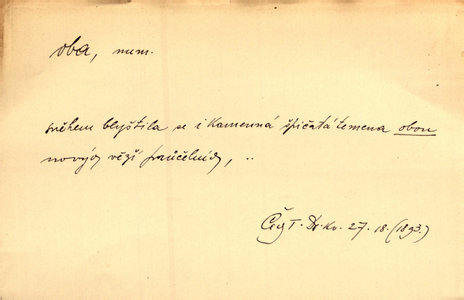 oba, num.
sněhem blyštila se i kamenná špičatá temena obou
nových věží průčelních, ..
Čch I. Dr. Kv. 27. 18. (1893.)